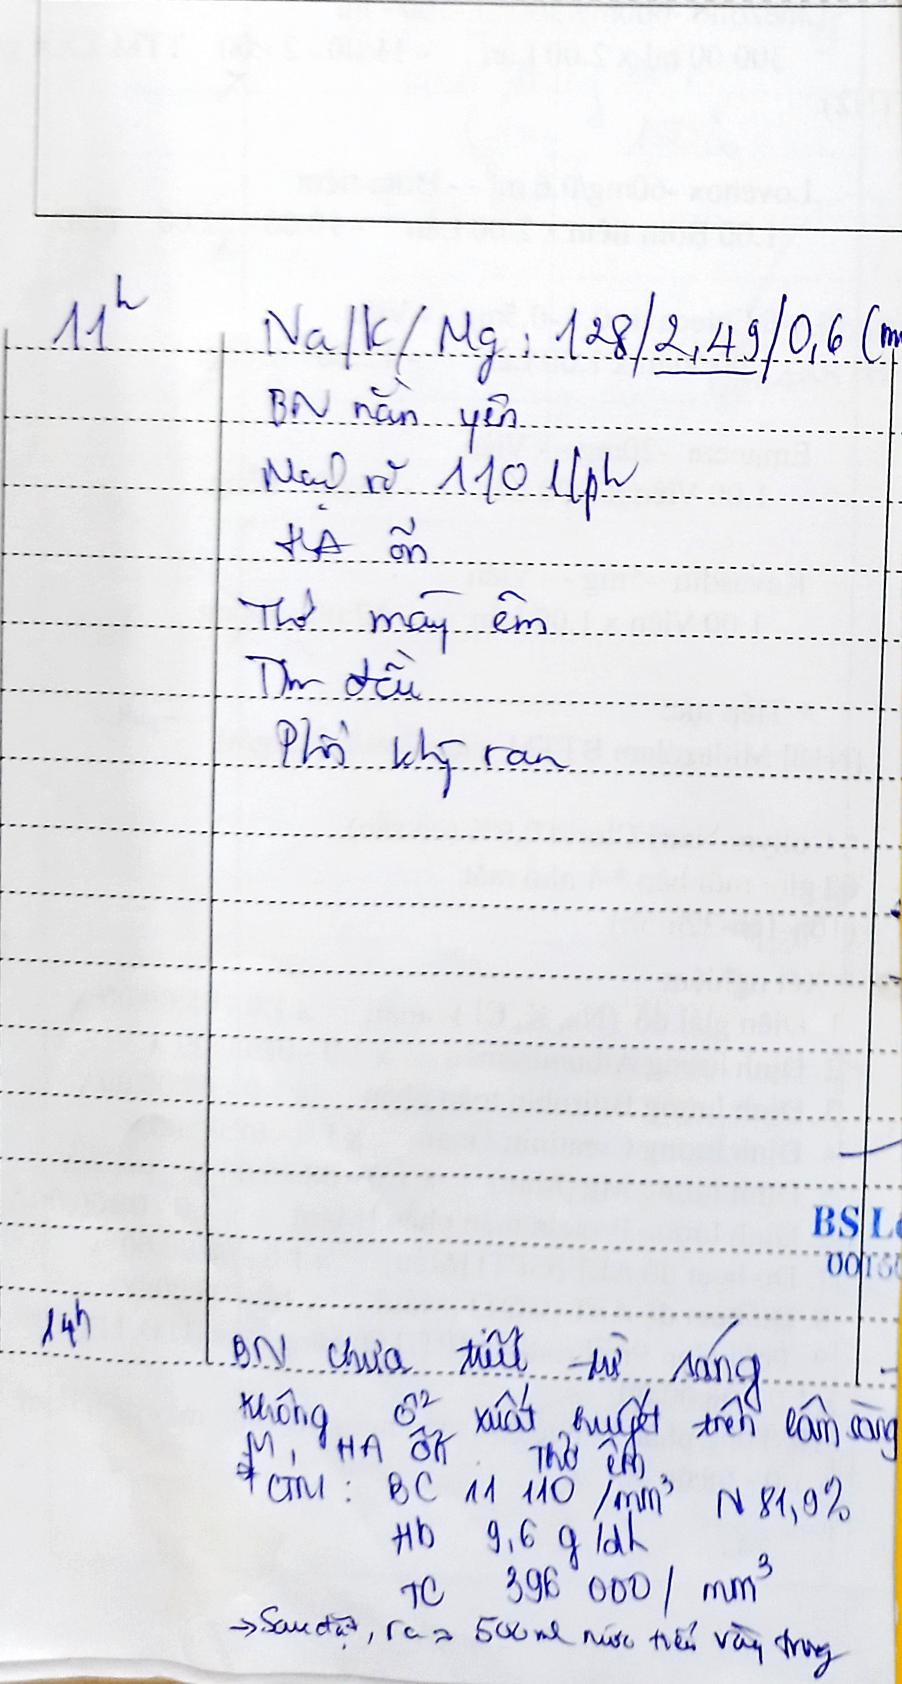 11h Na/K/Mg: 128/2,49/0,6 (m
BN nằm yên
Mạch rõ 110 l/ph
HA ổn
Thở máy êm
Tim đều
Phổi khg ran
BS L
14h BN chưa tiểu từ sáng
Không ổ xuất huyết trên lâm sàng
M, HA ổn. Thở êm
* CTM: BC 11 110 /mm³ N 81,9%
Hb 9,6 g/dL
TC 396 000 / mm³
→ Sau đặt, ra ≈ 500ml nước tiểu vàng trong